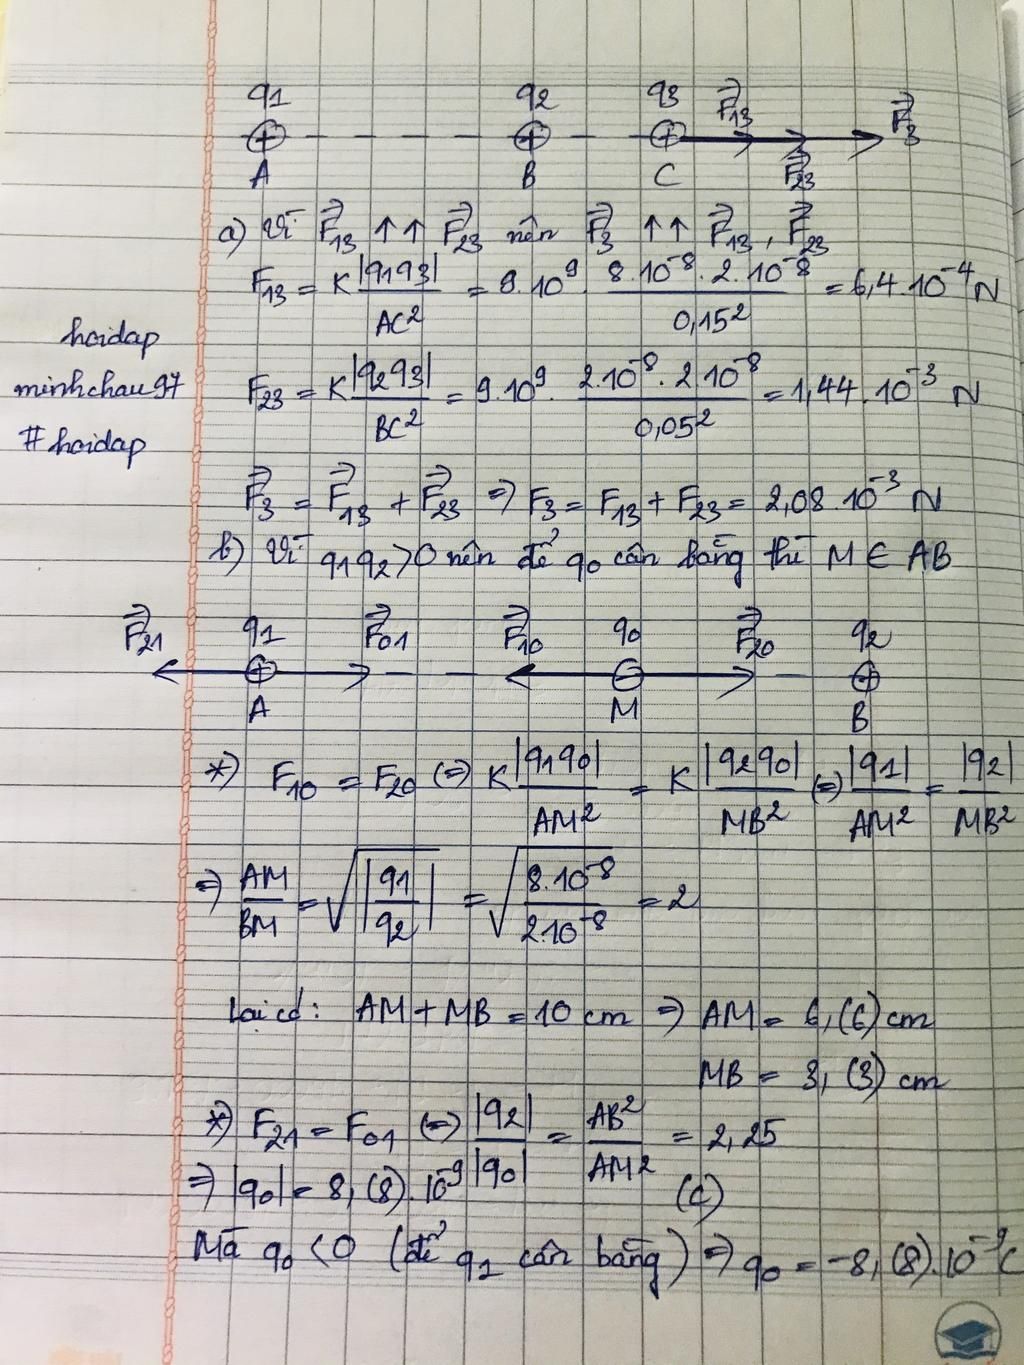 q1 q2 q3 F⃗13 F⃗3
A B C F⃗23
a) Vì F⃗13 ↑↑ F⃗23 nên F⃗3 ↑↑ F⃗13, F⃗23
F13 = K |q1q3| / AC² = 9.10⁹. 8.10⁻⁸.2.10⁻⁸ / 0,15² = 6,4.10⁻⁴ N
hoidap
minhchau97
#hoidap
F23 = K |q2q3| / BC² = 9.10⁹. 2.10⁻⁸.2.10⁻⁸ / 0,05² = 1,44.10⁻³ N
F⃗3 = F⃗13 + F⃗23 => F3 = F13 + F23 = 2,08.10⁻³ N
b) Vì q1q2>0 nên để q0 cân bằng thì M ∈ AB
F⃗21 q1 F⃗01 F⃗10 q0 F⃗20 q2
A M B
*) F10 = F20 (=) K |q1q0| / AM² = K |q2q0| / MB² (=) |q1| / AM² = |q2| / MB²
=) AM / BM = √|q1 / q2| = √(8.10⁻⁸ / 2.10⁻⁸) = 2
Lại có: AM + MB = 10 cm => AM = 6,(6) cm
MB = 3,(3) cm
*) F21 = F01 (=) |q2| / |q0| = AB² / AM² = 2,25
=) |q0| = 8,(8).10⁻⁹ (C)
Mà q0 <0 (để q1 cân bằng) => q0 = -8,(8).10⁻⁹C